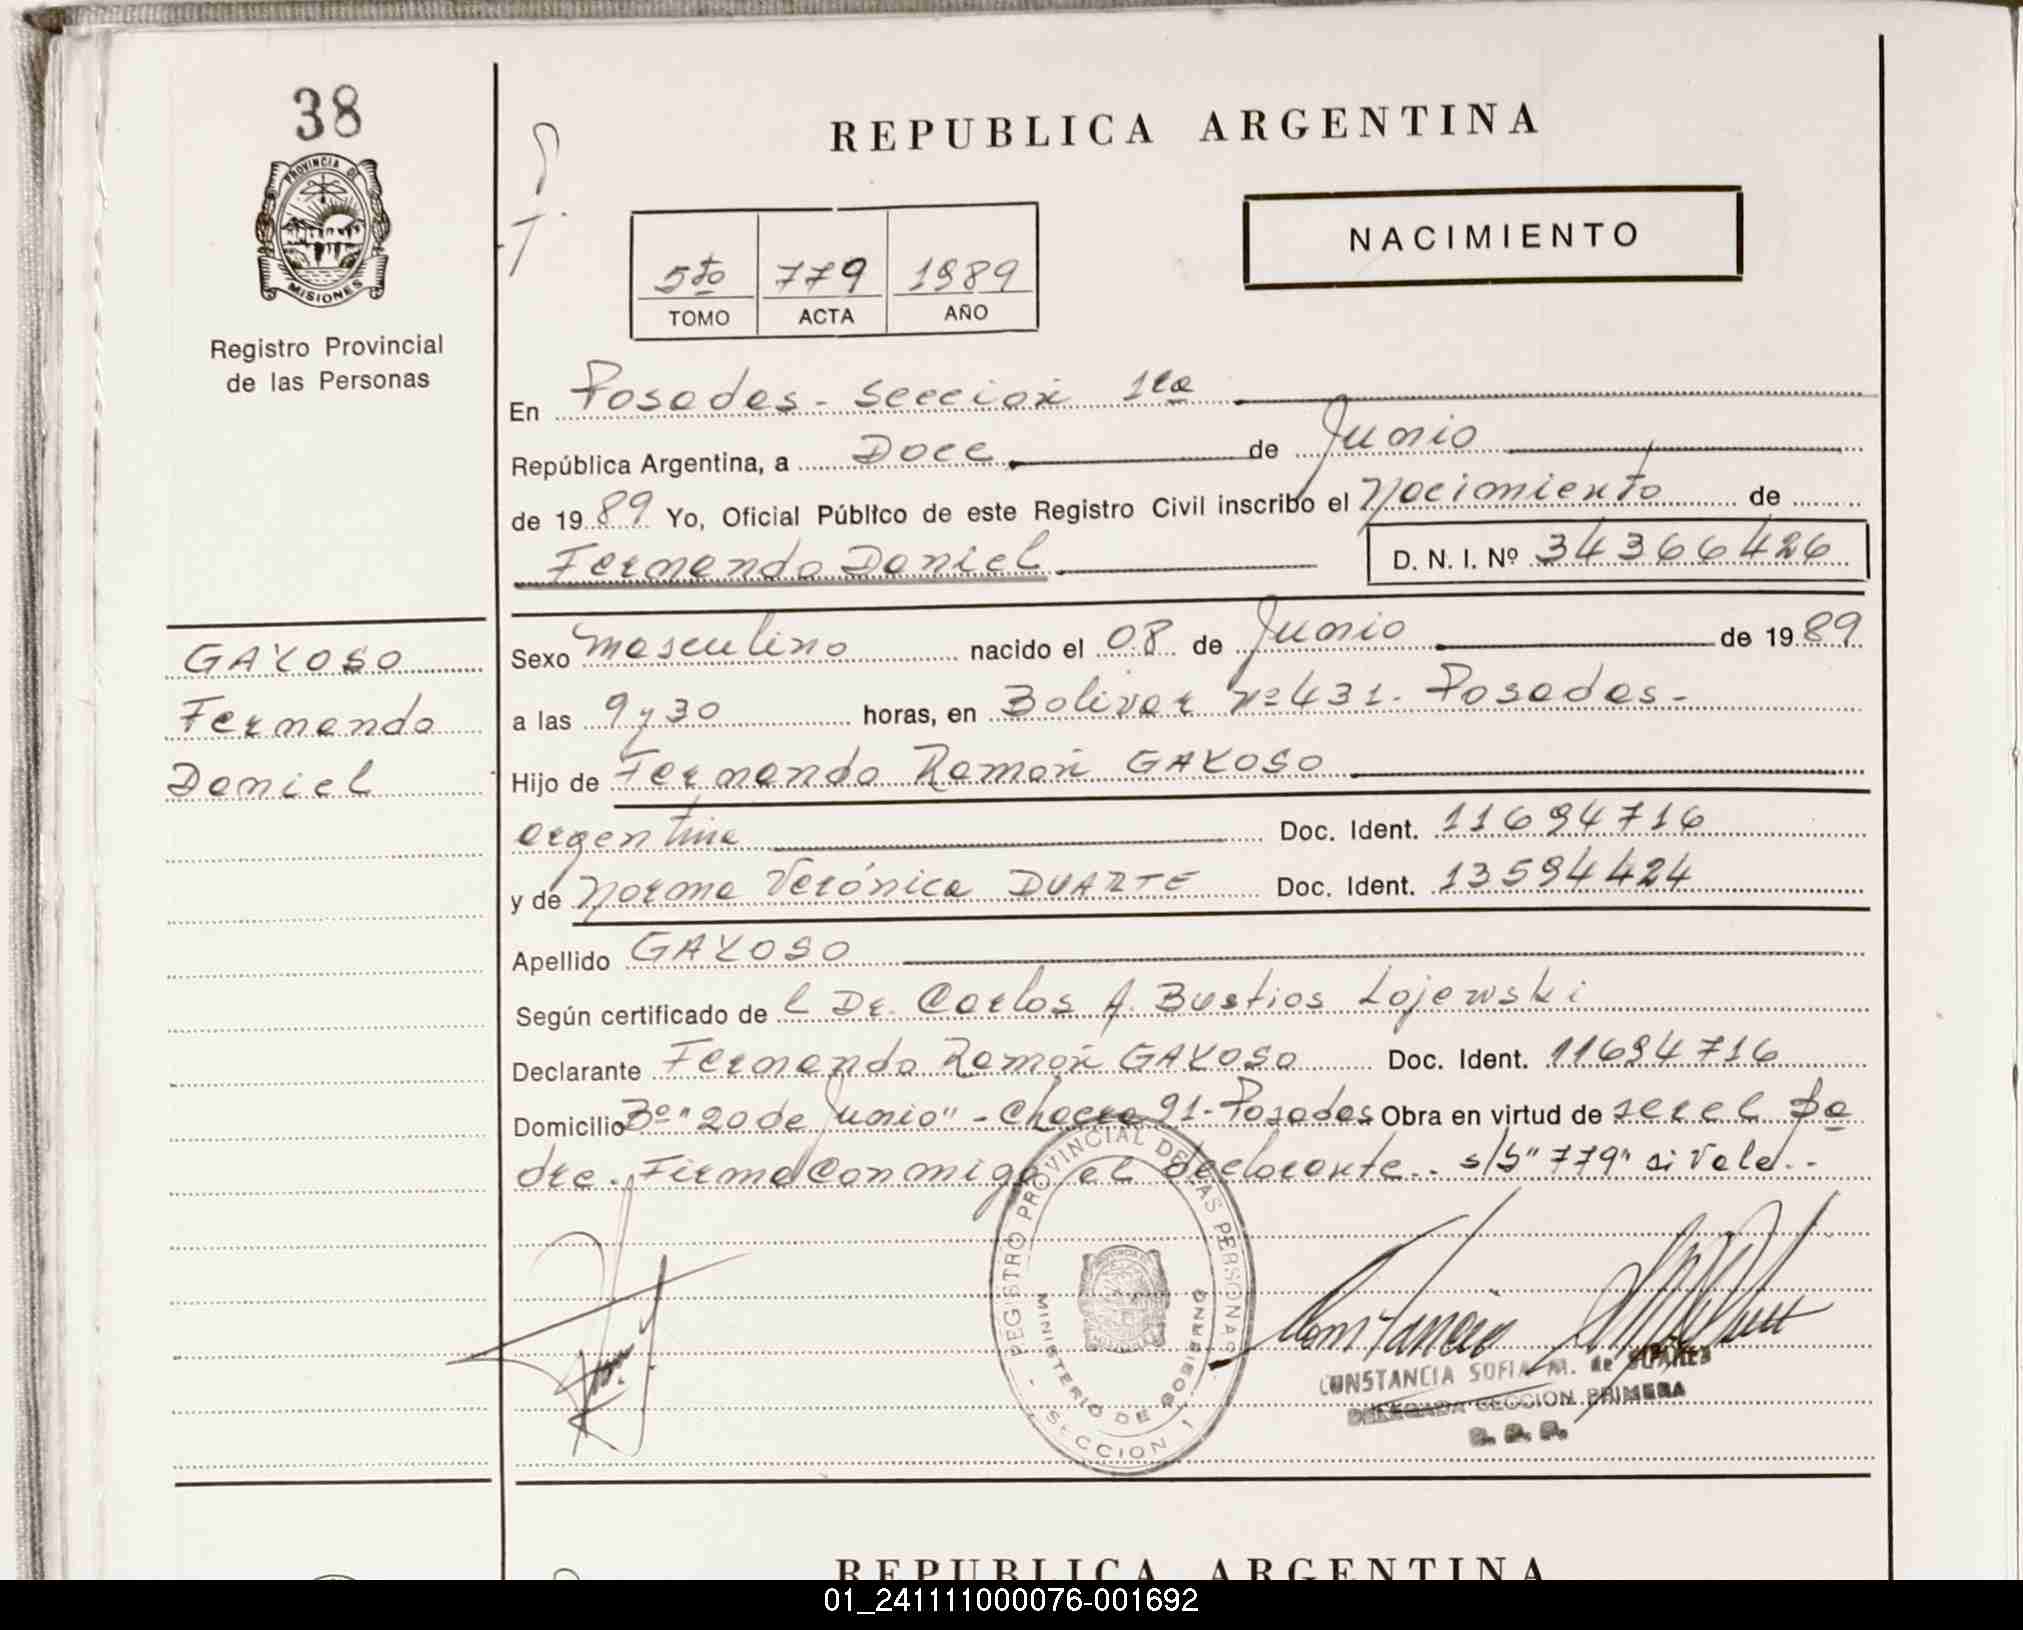 38
PROVINCIA DE
MISIONES
Registro Provincial
de las Personas
GAYOSO
Fernando
Daniel
REPUBLICA ARGENTINA
NACIMIENTO
5to 779 1989
TOMO ACTA AÑO
En Posadas - Sección 1ra
República Argentina, a Doce de Junio
de 1989 Yo, Oficial Público de este Registro Civil inscribo el Nacimiento de
Fernando Daniel D. N. I. Nº 34366426
Sexo masculino nacido el 08 de Junio de 1989
a las 9 y 30 horas, en Bolivar Nº 431 - Posadas -
Hijo de Fernando Ramón GAYOSO
argentina Doc. Ident. 11694716
y de Norma Verónica DUARTE Doc. Ident. 13594424
Apellido GAYOSO
Según certificado de l Dr. Carlos A. Bustios Lojewski
Declarante Fernando Ramón GAYOSO Doc. Ident. 11694716
Domicilio Bº "20 de Junio" - Chacra 91 - Posadas Obra en virtud de ser el Pa
dre. Firma conmigo el declarante.. s/b "779" si vale. -
REGISTRO PROVINCIAL DE LAS PERSONAS
MINISTERIO DE GOBIERNO
- SECCION 1
CONSTANCIA SOFIA M. de SUAREZ
DELEGADA SECCION PRIMERA
R. P. P.
REPUBLICA ARGENTINA
01_241111000076-001692